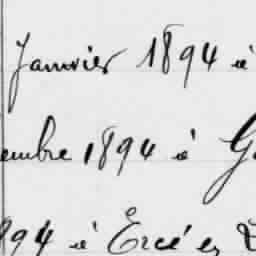 Janvier 1894 à
embre 1894 à
894 à Ercé en